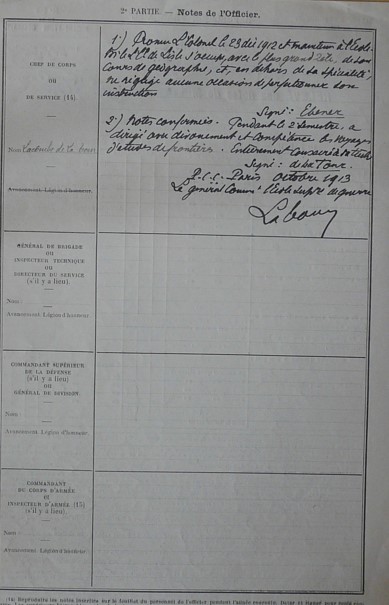 2e PARTIE. — Notes de l'Officier.
CHEF DE CORPS
OU
DE SERVICE (14).
Nom
Avancement. Légion d'honneur.
1°) Promu Lt Colonel le 23 déc 1912 et maintenu à l'École
le Lt Cl de Lisle s'occupe, avec le plus grand zèle, de son
Cours de géographie, et, en dehors de sa spécialité,
ne néglige aucune occasion de perfectionner son
instruction
Signé: Ebener
2°) Notes confirmées. Pendant le 2e Semestre, a
dirigé avec dévouement et compétence les voyages
d'études de frontières. Entièrement consacré à sa tâche
Signé:
P.C.C. Paris octobre 1913
Le général Commt l'École supre de guerre
GÉNÉRAL DE BRIGADE
OU
INSPECTEUR TECHNIQUE
OU
DIRECTEUR DU SERVICE
(s'il y a lieu).
Nom
Avancement. Légion d'honneur.
COMMANDANT SUPÉRIEUR
DE LA DÉFENSE
(s'il y a lieu)
OU
GÉNÉRAL DE DIVISION.
Nom
Avancement. Légion d'honneur.
COMMANDANT
DU CORPS D'ARMÉE
OU
INSPECTEUR D'ARMÉE (15)
(s'il y a lieu).
Nom
Avancement. Légion d'honneur.
(14) Reproduire les notes inscrites sur le feuillet du personnel de l'officier pendant l'année